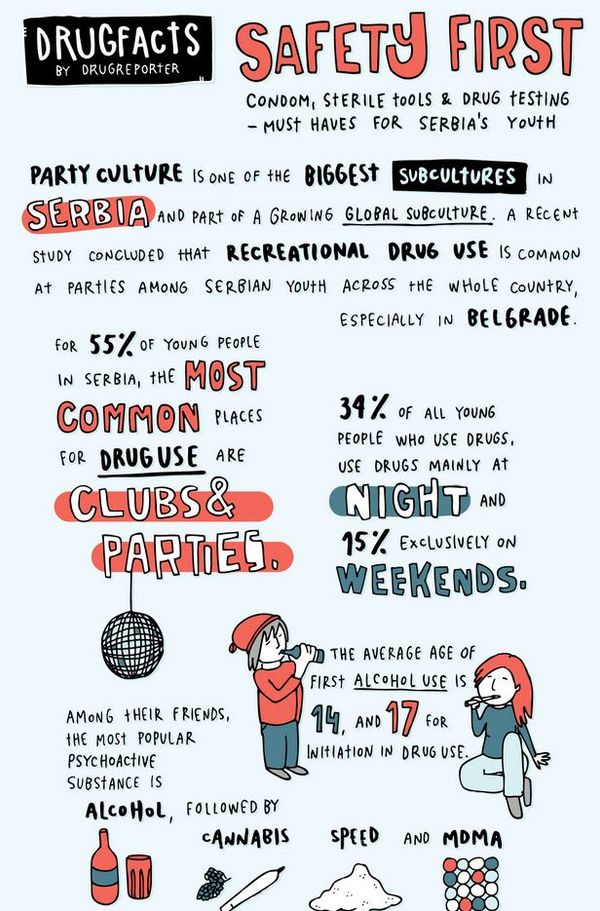 "DRUGFACTS
BY DRUGREPORTER"
SAFETY FIRST
CONDOM, STERILE TOOLS & DRUG TESTING
– MUST HAVES FOR SERBIA'S YOUTH
PARTY CULTURE IS ONE OF THE BIGGEST SUBCULTURES IN
SERBIA AND PART OF A GROWING GLOBAL SUBCULTURE. A RECENT
STUDY CONCLUDED THAT RECREATIONAL DRUG USE IS COMMON
AT PARTIES AMONG SERBIAN YOUTH ACROSS THE WHOLE COUNTRY,
ESPECIALLY IN BELGRADE.
FOR 55% OF YOUNG PEOPLE
IN SERBIA, THE MOST
COMMON PLACES
FOR DRUG USE ARE
CLUBS &
PARTIES.
34% OF ALL YOUNG
PEOPLE WHO USE DRUGS,
USE DRUGS MAINLY AT
NIGHT AND
15% EXCLUSIVELY ON
WEEKENDS.
THE AVERAGE AGE OF
FIRST ALCOHOL USE IS
14, AND 17 FOR
INITIATION IN DRUG USE.
AMONG THEIR FRIENDS,
THE MOST POPULAR
PSYCHOACTIVE
SUBSTANCE IS
ALCOHOL, FOLLOWED BY
CANNABIS SPEED AND MDMA